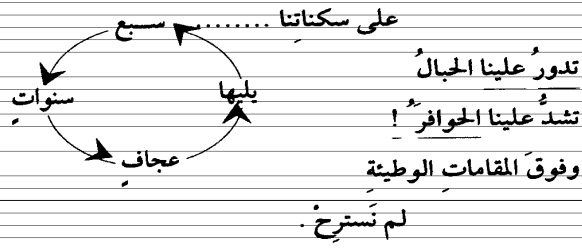 على سكناتِنا ......... سبع
سنواتٍ
عجافٍ
يليها
تدورُ علينا الحبالُ
تشدُّ علينا الحوافرُ !
وفوقَ المقاماتِ الوطيئةِ
لم نَسترِحْ .